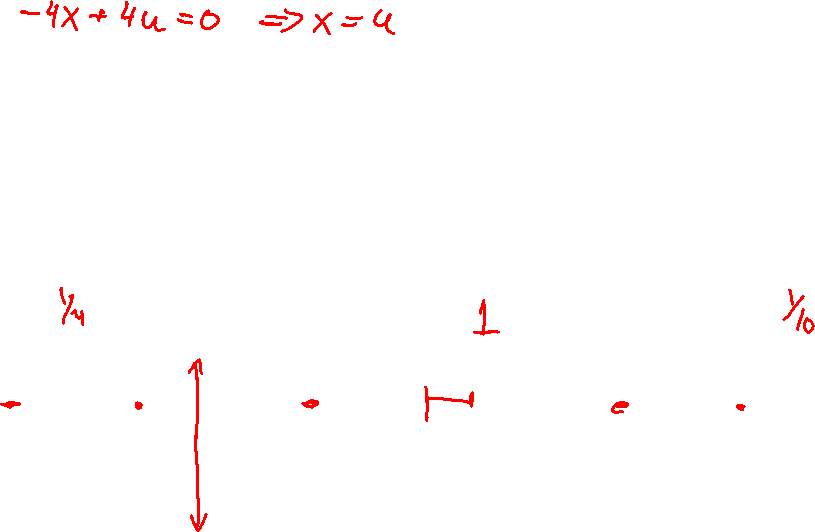 -4x + 4u = 0 => x = u
1/4 1 1/10